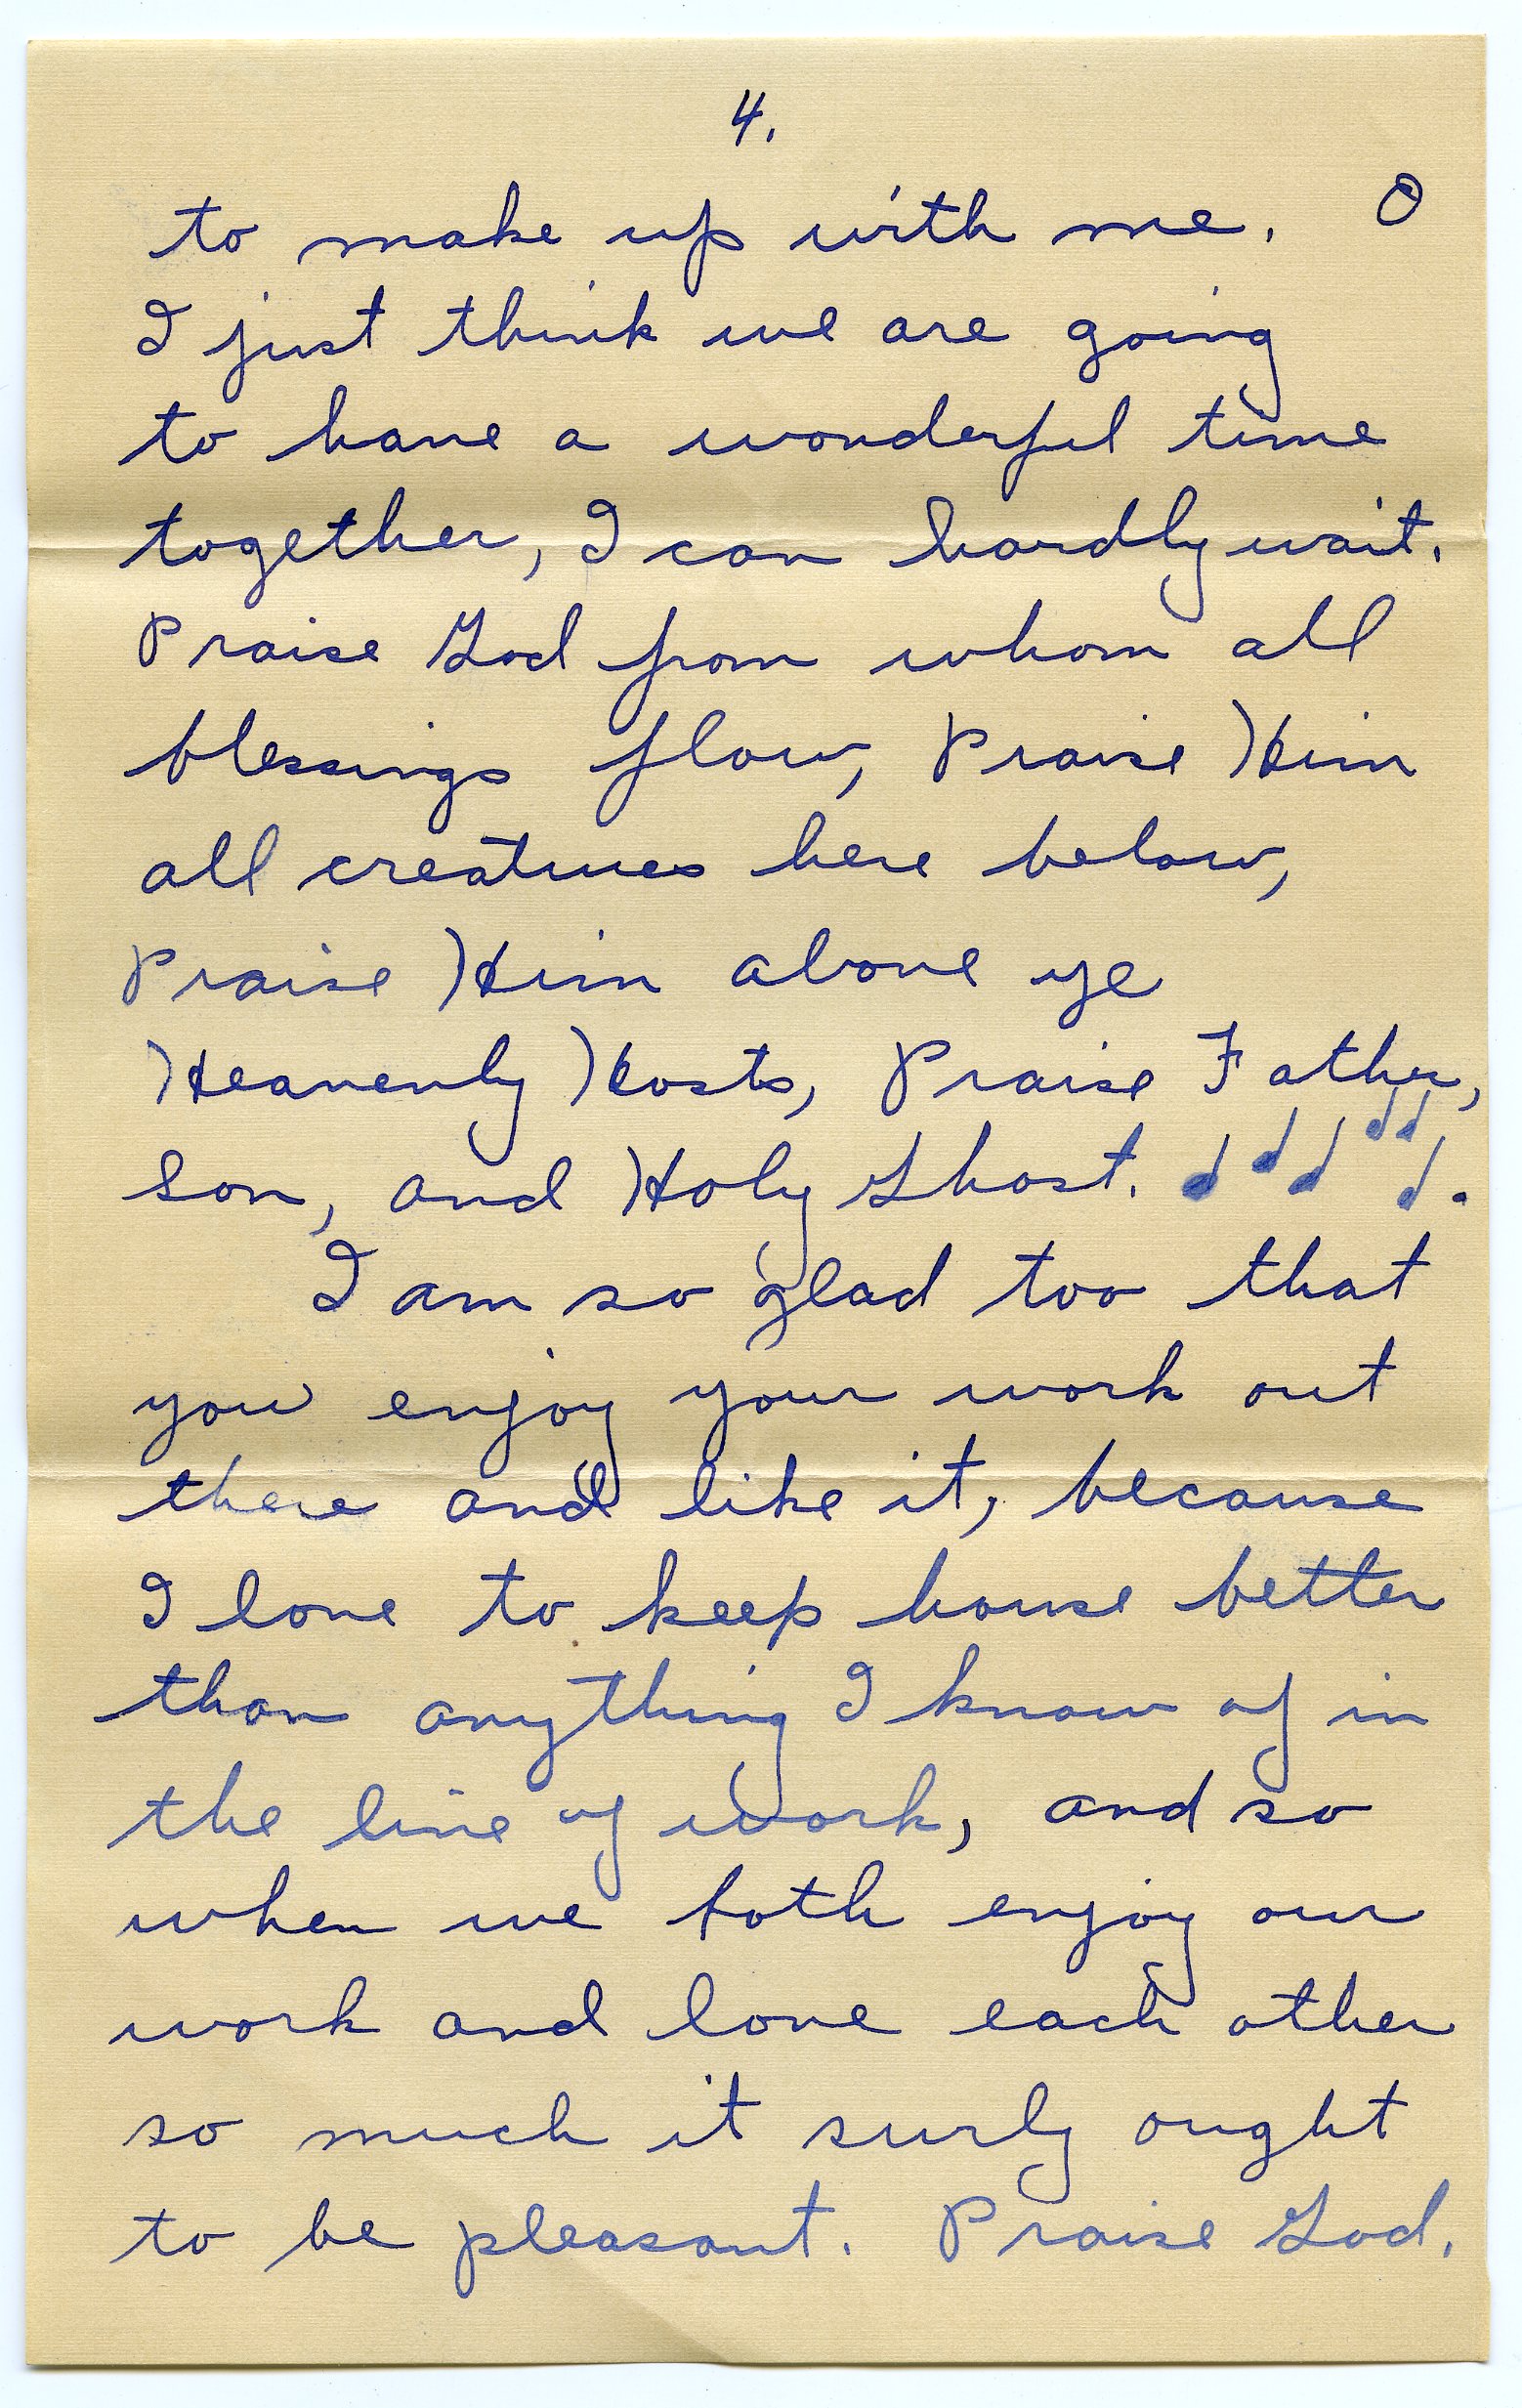 4.
to make up with me. O
I just think we are going
to have a wonderful time
together, I can hardly wait.
Praise God from whom all
blessings flow, Praise Him
all creatures here below,
Praise Him above ye
Heavenly Hosts, Praise Father,
Son, and Holy Ghost.
I am so glad too that
you enjoy your work out
there and like it, because
I love to keep house better
than anything I know of in
the line of work, and so
when we both enjoy our
work and love each other
so much it surly ought
to be pleasant. Praise God.